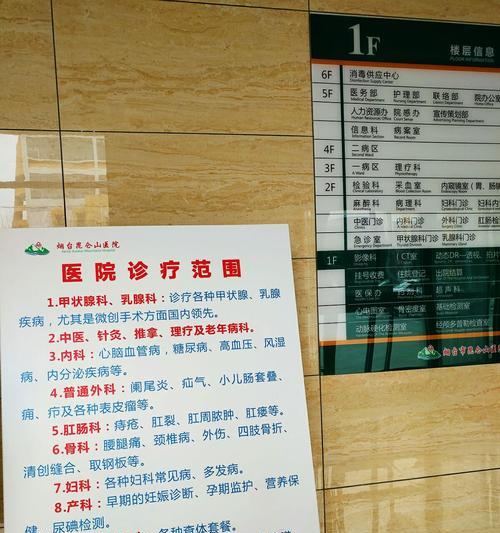 烟台昆仑山医院
医院诊疗范围
1.甲状腺科、乳腺科：诊疗各种甲状腺、乳腺
疾病，尤其是微创手术方面国内领先。
2.中医、针灸、推拿、理疗及老年病科。
3.内科：心脑血管病，糖尿病、高血压、风湿
病、内分泌疾病等。
4.普通外科：阑尾炎、疝气、小儿肠套叠、
痈、疖及各种表皮瘤等。
5.肛肠科：痔疮、肛裂、肛周脓肿、肛瘘等。
6.骨科：腰腿痛、颈椎病、外伤、四肢骨折，
清创缝合、取钢板等。
7.妇科：各种妇科常见病、多发病。
8.产科：早期的妊娠诊断、孕期监护、营养保
健、尿碘检测。
各种查体套餐。
1F 楼层信息
FLOOR INFORMATION
6F 消毒供应中心
Disinfection Supply Center
5F 医务部 护理部 联络部 院办公室
Medical Department Nursing Department
人力资源办 院感办 宣传策划部
信息科 病案室
Record Room
4F 二病区
3F 一病区 理疗科
2F 检验科 采血室 内窥镜室(胃、肠
麻醉科 病理科 妇科门诊 妇科
中医门诊 内科门诊 外科门诊 肛肠
急诊室 甲状腺科门诊 乳腺科门诊
1F 影像科 (CT室 动态DR—透视、拍片
挂号收费 住院登记 出院结算
医保办 超声科
心电图室 骨密度室 基础检测室
动脉硬化检测室 经颅多普勒检查室
烟台市昆仑山医院